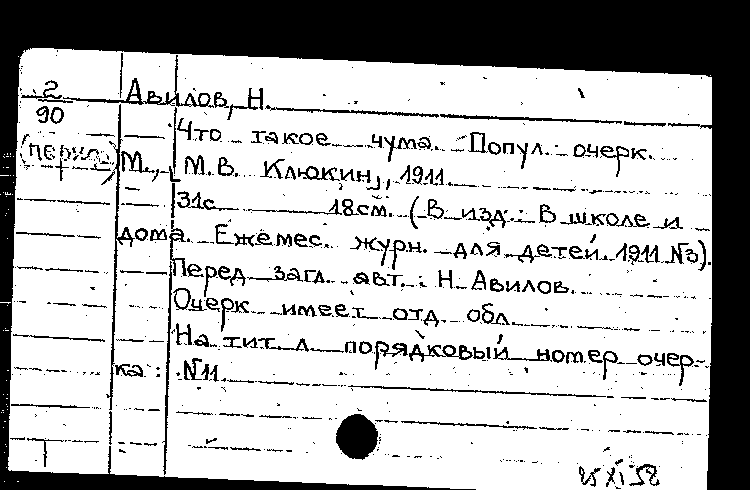 2
90
(период.)
Авилов, Н.
Что такое чума. Попул. очерк.
М., [М.В. Клюкин], 1911.
31с 18см. (В изд.: В школе и
дома. Ежемес. журн. для детей. 1911 №3).
Перед загл. авт.: Н. Авилов.
Очерк имеет отд. обл.
На тит. л. порядковый номер очер-
ка: №11.
25 XI 58